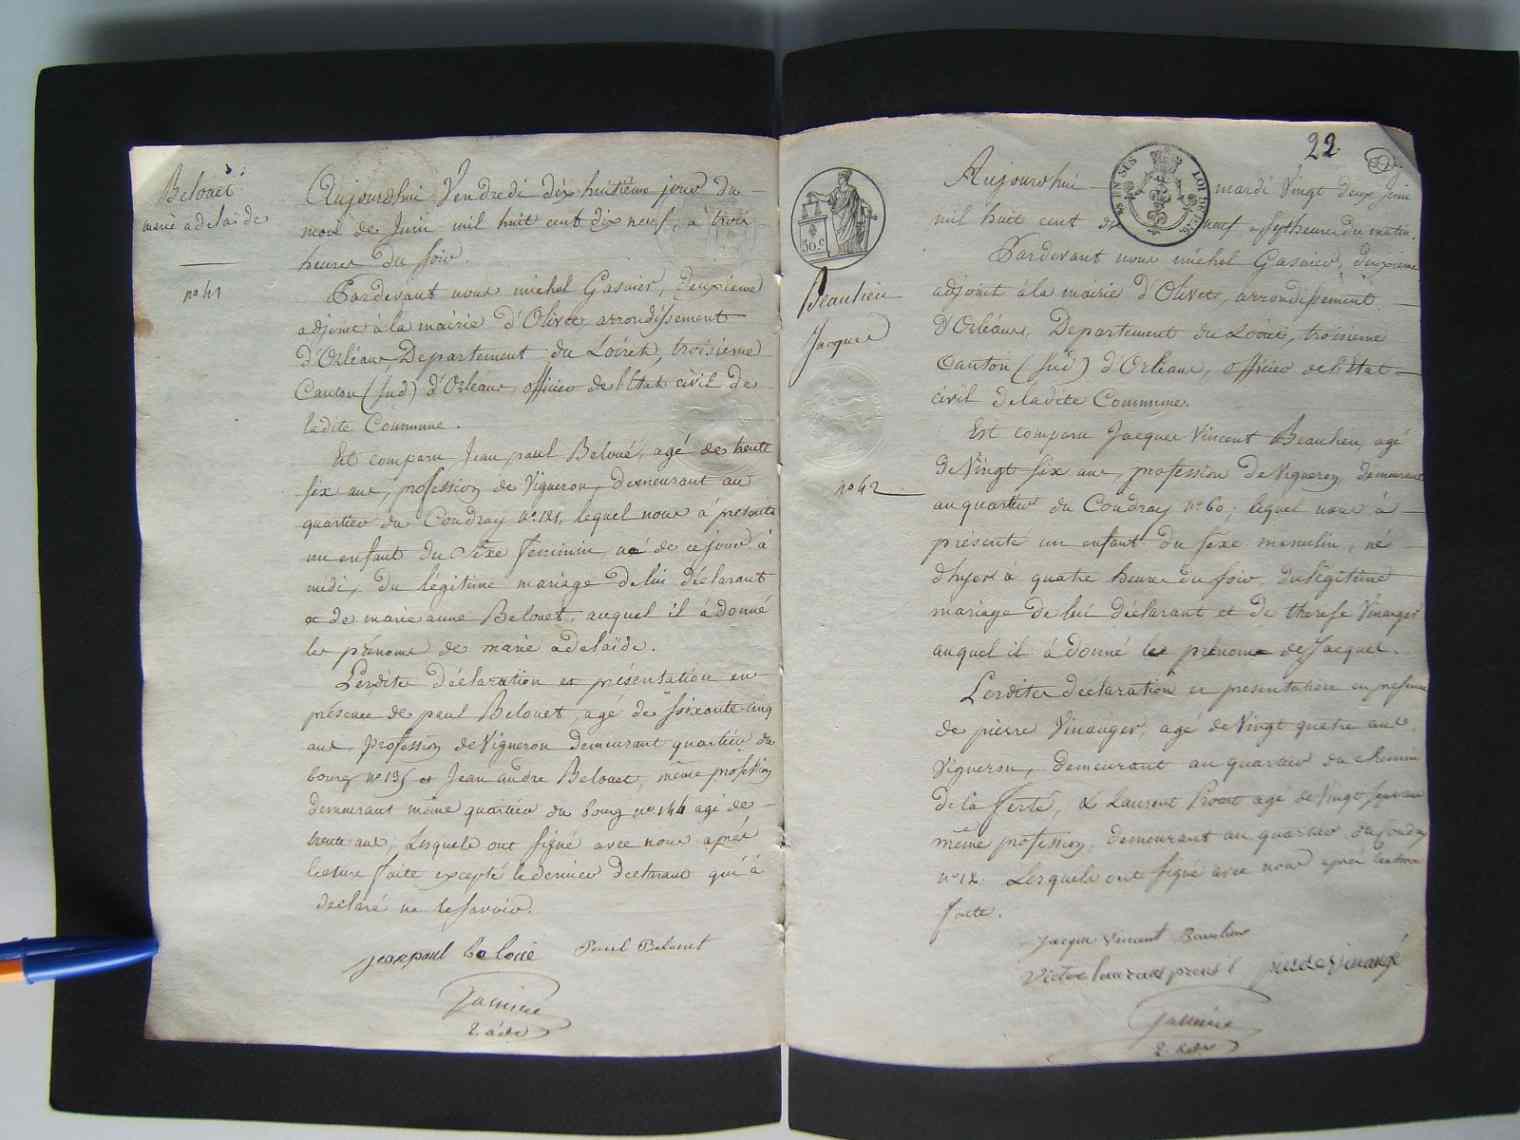 Belouet
marie adelaide
n° 41
Aujourdhui Vendredi dix huitieme jour du
mois de Juin mil huit cent dix neuf, à trois
heures du soir.
Pardevant nous michel Gasnier, Deuxieme
adjoint à la mairie d'Olivet arrondissement
d'Orléans, Departement du Loiret, troisieme
Canton (sud) d'Orleans, officier de l'Etat civil de
ladite Commune.
Est comparu Jean paul Beloué, agé de trente
six ans, profession de Vigneron, demeurant au
quartier du Coudray n° 121, lequel nous à présenté
un enfant du Séxe feminin, né de ce jour à
midi, du légitime mariage de lui déclarant
et de marie anne Belouet, auquel il à donné
les prénoms de marie adelaïde.
Lesdites déclaration et présentation en
présence de paul Belouet, agé de soixante-cinq
ans, profession de Vigneron demeurant quartier du
bourg n° 135 et Jean andre Belouet, même profession
demeurant même quartier du bourg n° 144 agé de
trente ans, Lesquels ont signé avec nous après
lecture faite excepté le dernier declarant qui à
declaré ne le savoir.
jean paul beloué Paul Belouet
2. adt
22
SIS LOI
50 c
Beaulieu
Jacques
n° 42
Aujourdhui mardi Vingt deux Juin
mil huit cent dix neuf à sept heures du matin.
Pardevant nous michel Gasnier, deuxieme
adjoint à la mairie d'Olivet, arrondissement
d'Orléans, Departement du Loiret, troisieme
Canton (sud) d'Orleans, officier de l'Etat
civil deladite Commune.
Est comparu Jacques Vincent Beaulieu, agé
de Vingt six ans, profession de Vigneron, demeurant
au quartier du Coudray n° 60; lequel nous à
présenté un enfant du sexe masculin, né
d'hyer à quatre heures du soir, du légitime
mariage de lui déclarant et de therese Vinauger
auquel il à donné le prénom de Jacques.
Lesdites declaration et presentation en presence
de pierre Vinauger, agé de Vingt quatre ans
Vigneron, demeurant au quartier du chemin
de la ferté, et Laurent Proust agé de Vingt sept ans
même profession, demeurant au quartier du Coudray
n° 12 Lesquels ont signé avec nous après lecture
faite.
Jacque Vincent Beaulieu
Victor laurans proust pierre Vinaugé
2. adt